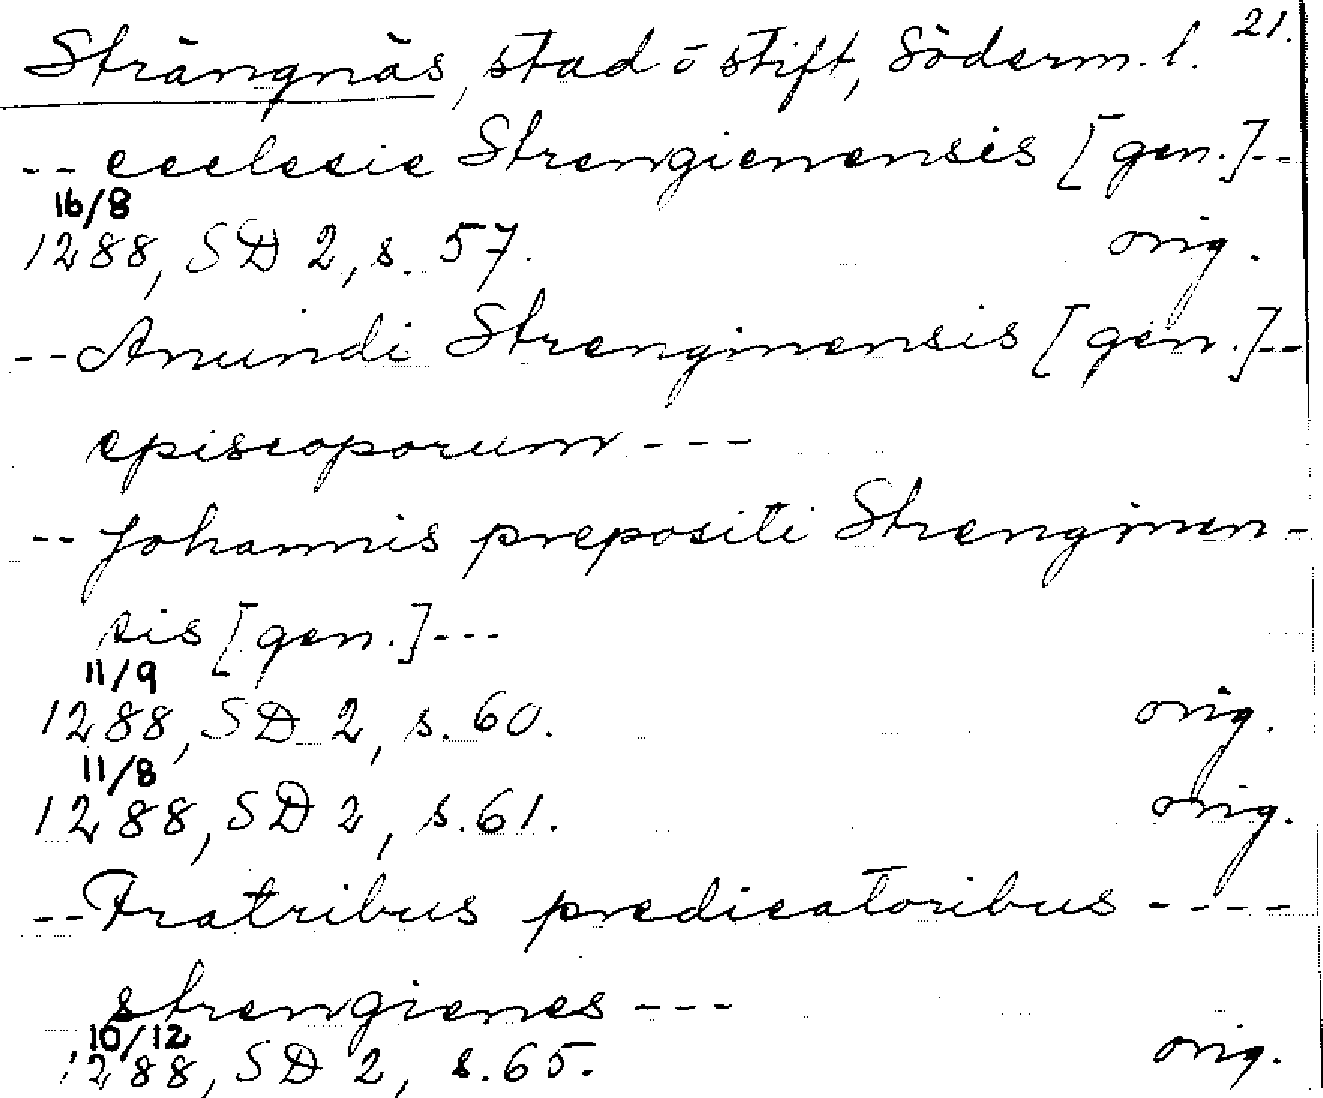 21.
Strängnäs, stad ō stift, Söderm. l.
-- ecclesie Strengienensis [gen.]--
16/8
1288, SD 2, s. 57. orig.
-- Anundi Strenginensis [gen.]--
episcoporum ---
-- Johannis prepositi Strenginen-
sis [gen.]---
11/9
1288, SD 2, s. 60. orig.
11/8
1288, SD 2, s. 61. orig.
-- Fratribus predicatoribus ----
strengienes ---
10/12
1288, SD 2, s. 65. orig.